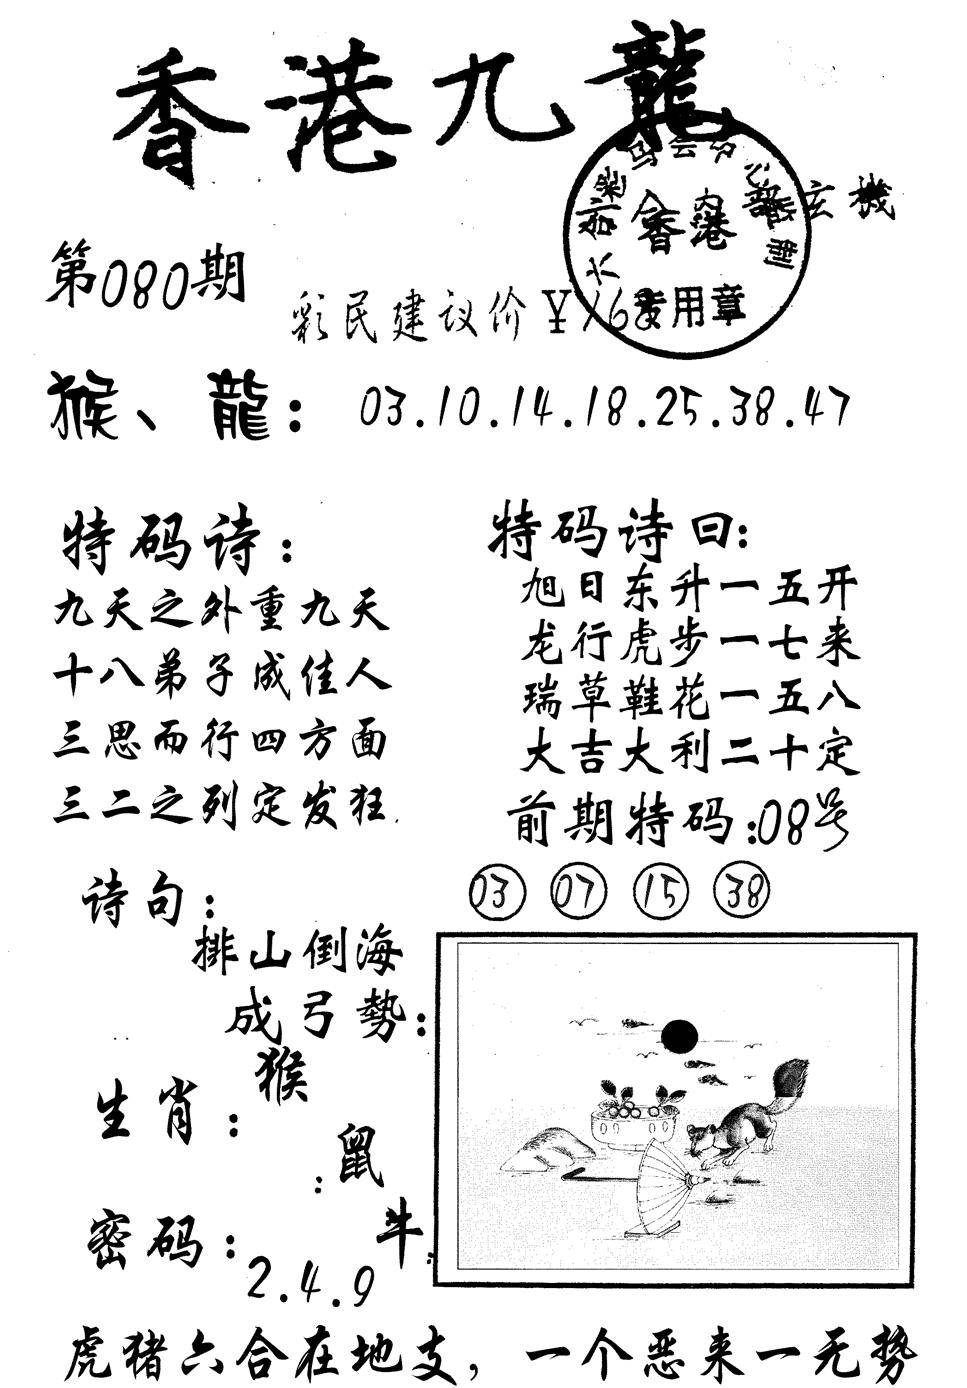 香港九龍
六合彩马会
香港
专用章
玄機
第080期
彩民建议价¥168
猴、龍：03.10.14.18.25.38.47
特码诗：
九天之外重九天
十八弟子成佳人
三思而行四方面
三二之列定发狂
特码诗曰：
旭日东升一五开
龙行虎步一七来
瑞草鞋花一五八
大吉大利二十定
前期特码：08号
03 07 15 38
诗句：
排山倒海
成弓勢：
生肖：猴
鼠
牛
密码：2.4.9
虎猪六合在地支，一个恶来一无势